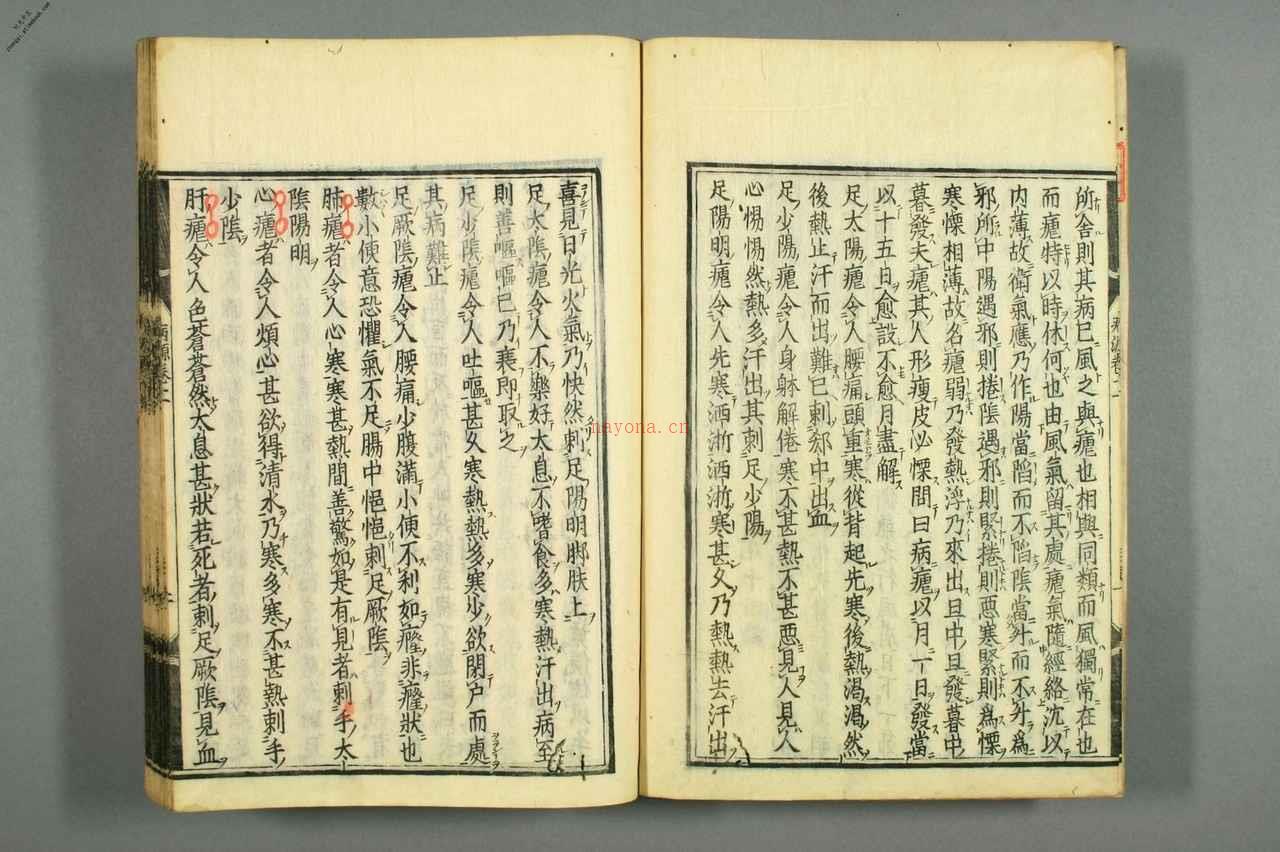 所舍則其病已風之與瘧也相與同類而風獨常在也
而瘧特以時休何也由風氣留其處瘧氣隨經絡沈以
内薄故衛氣應乃作陽當陷而不陷陰當升而不升爲
邪所中陽遇邪則捲陰遇邪則緊捲則惡寒緊則爲慄
寒慄相薄故名瘧弱乃發熱浮乃來出旦中旦發暮中
暮發夫瘧其人形瘦皮必慄問曰病瘧以月一日發當
以十五日愈設不愈月盡解
足太陽瘧令人腰痛頭重寒從背起先寒後熱渴渴然
後熱止汗而出難已刺郄中出血
足少陽瘧令人身躰解倦寒不甚熱不甚惡見人見人
心惕惕然熱多汗出其刺足少陽
足陽明瘧令人先寒洒淅洒淅寒甚久乃熱熱去汗出
喜見日光火氣乃快然刺足陽明脚跗上
足太陰瘧令人不樂好太息不嗜食多寒熱汗出病至
則善嘔嘔已乃衰即取之
足少陰瘧令人吐嘔甚久寒熱熱多寒少欲閉户而處
其病難止
足厥陰瘧令人腰痛少腹滿小便不利如癃非癃狀也
數小便意恐懼氣不足腸中悒悒刺足厥陰
肺瘧者令人心寒寒甚熱間善驚如是有見者刺手太
陰陽明
心瘧者令人煩心甚欲得清水乃寒多寒不甚熱刺手
少陰
肝瘧令人色蒼蒼然太息甚狀若死者刺足厥陰見血
病源卷十一
nayona.cn